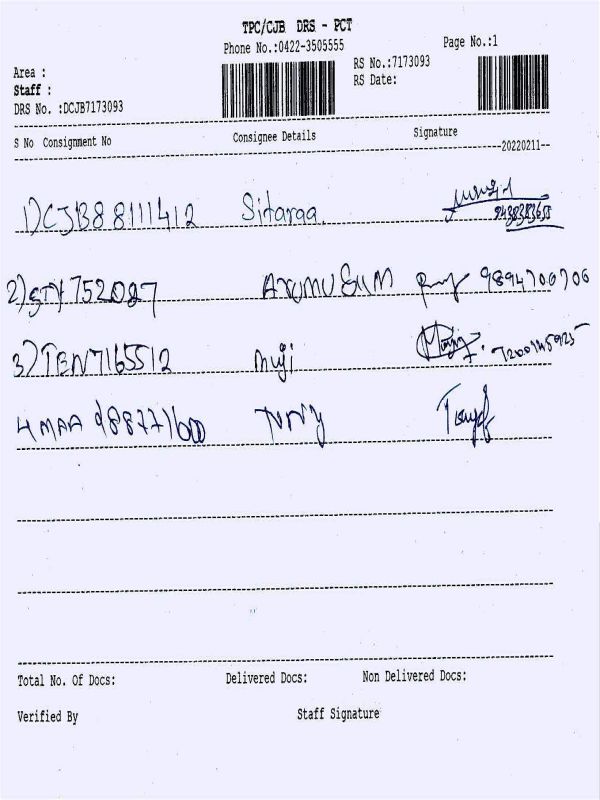 TPC/CJB DRS - PCT
Phone No.:0422-3505555 Page No.:1
Area : RS No.:7173093
Staff : RS Date:
DRS No. :DCJB7173093
S No Consignment No Consignee Details Signature
20220211
1) DCJB88111412 Sitaraa
2) 752027 9894700706
3) TEN7165512 muji 7200145925
4 MAA 988771600
Total No. Of Docs: Delivered Docs: Non Delivered Docs:
Verified By Staff Signature